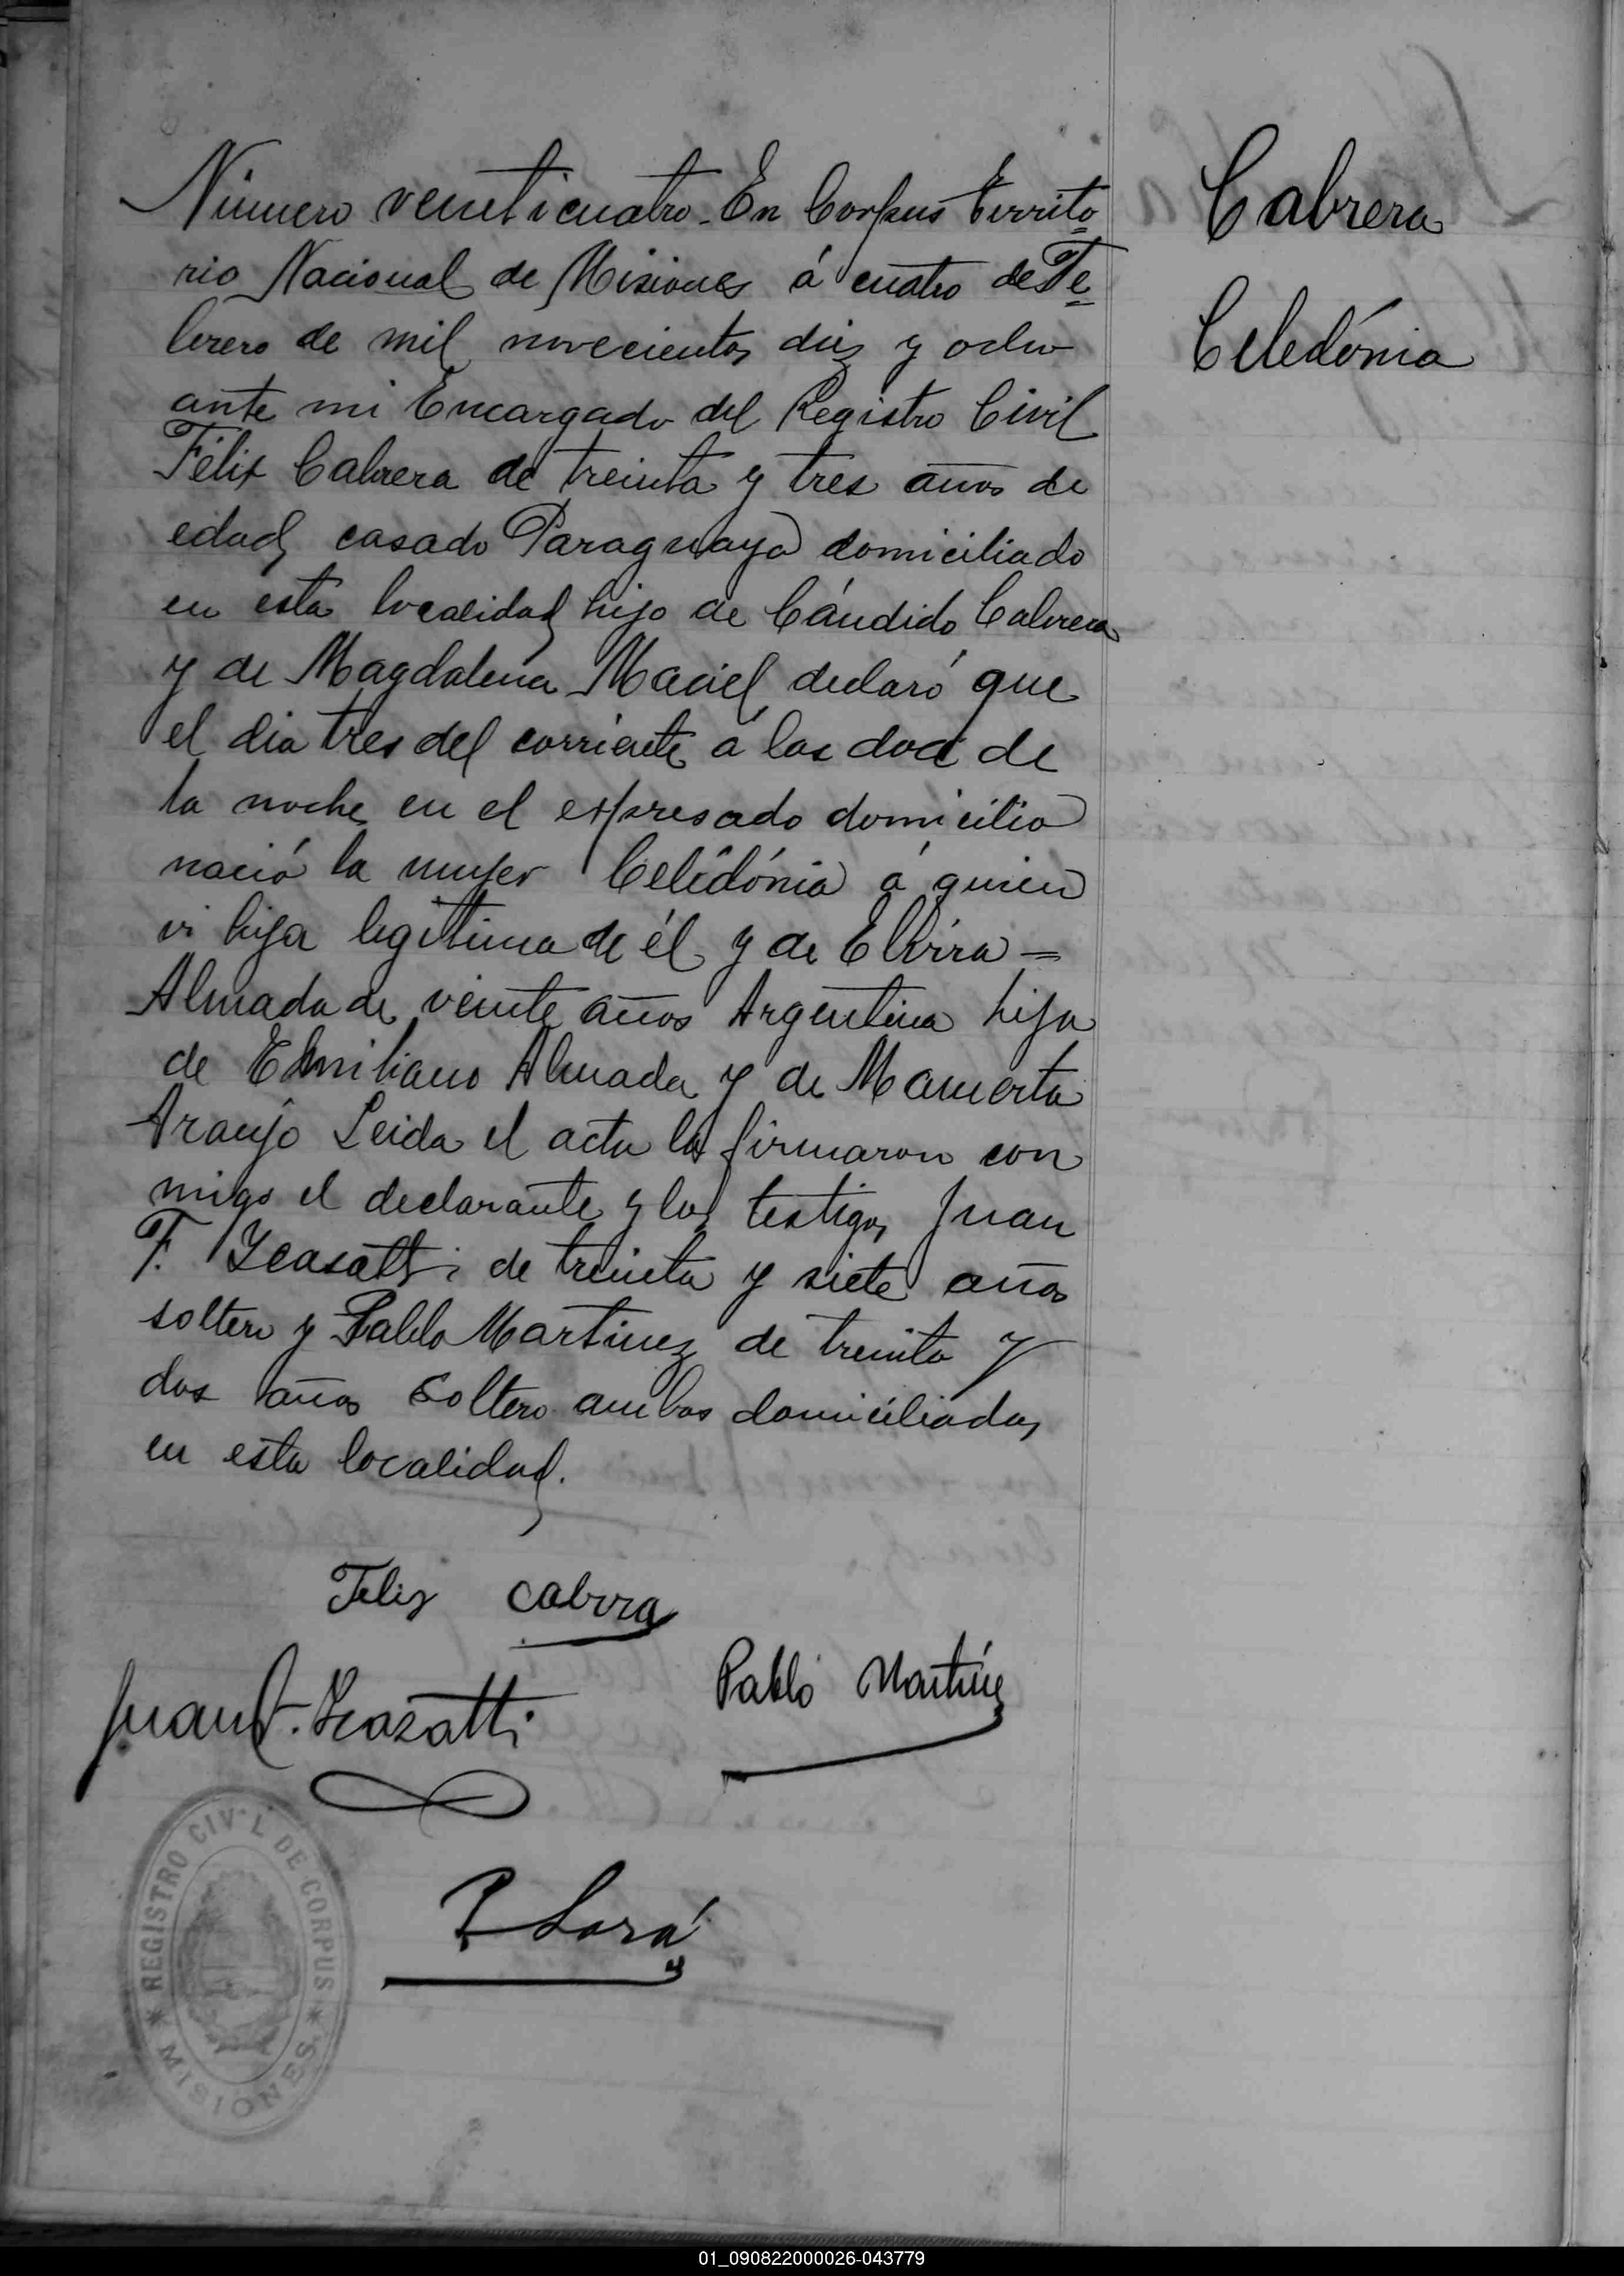 Número veinticuatro. En Corpus Territo=
rio Nacional de Misiones á cuatro de Fe=
brero de mil novecientos diez y ocho
ante mi Encargado del Registro Civil
Félix Cabrera de treinta y tres años de
edad casado Paraguayo domiciliado
en esta localidad hijo de Cándido Cabrera
y de Magdalena Maciel declaró que
el dia tres del corriente á las doce de
la noche en el expresado domicilio
nació la mujer Celedónia á quien
vi hija legitima de él y de Elvira =
Almada de veinte años Argentina hija
de Emiliano Almada y de Mamerta
Araujo Leida el acta la firmaron con
migo el declarante y los testigos Juan
F. Icasatti de treinta y siete años
soltero y Pablo Martinez de treinta y
dos años soltero ambos domiciliados
en esta localidad.
Cabrera
Celedónia
Felix cabrra
Juan F. Icasatti
Pablo Martinez
REGISTRO CIVIL DE CORPUS
* MISIONES *
01_090822000026-043779